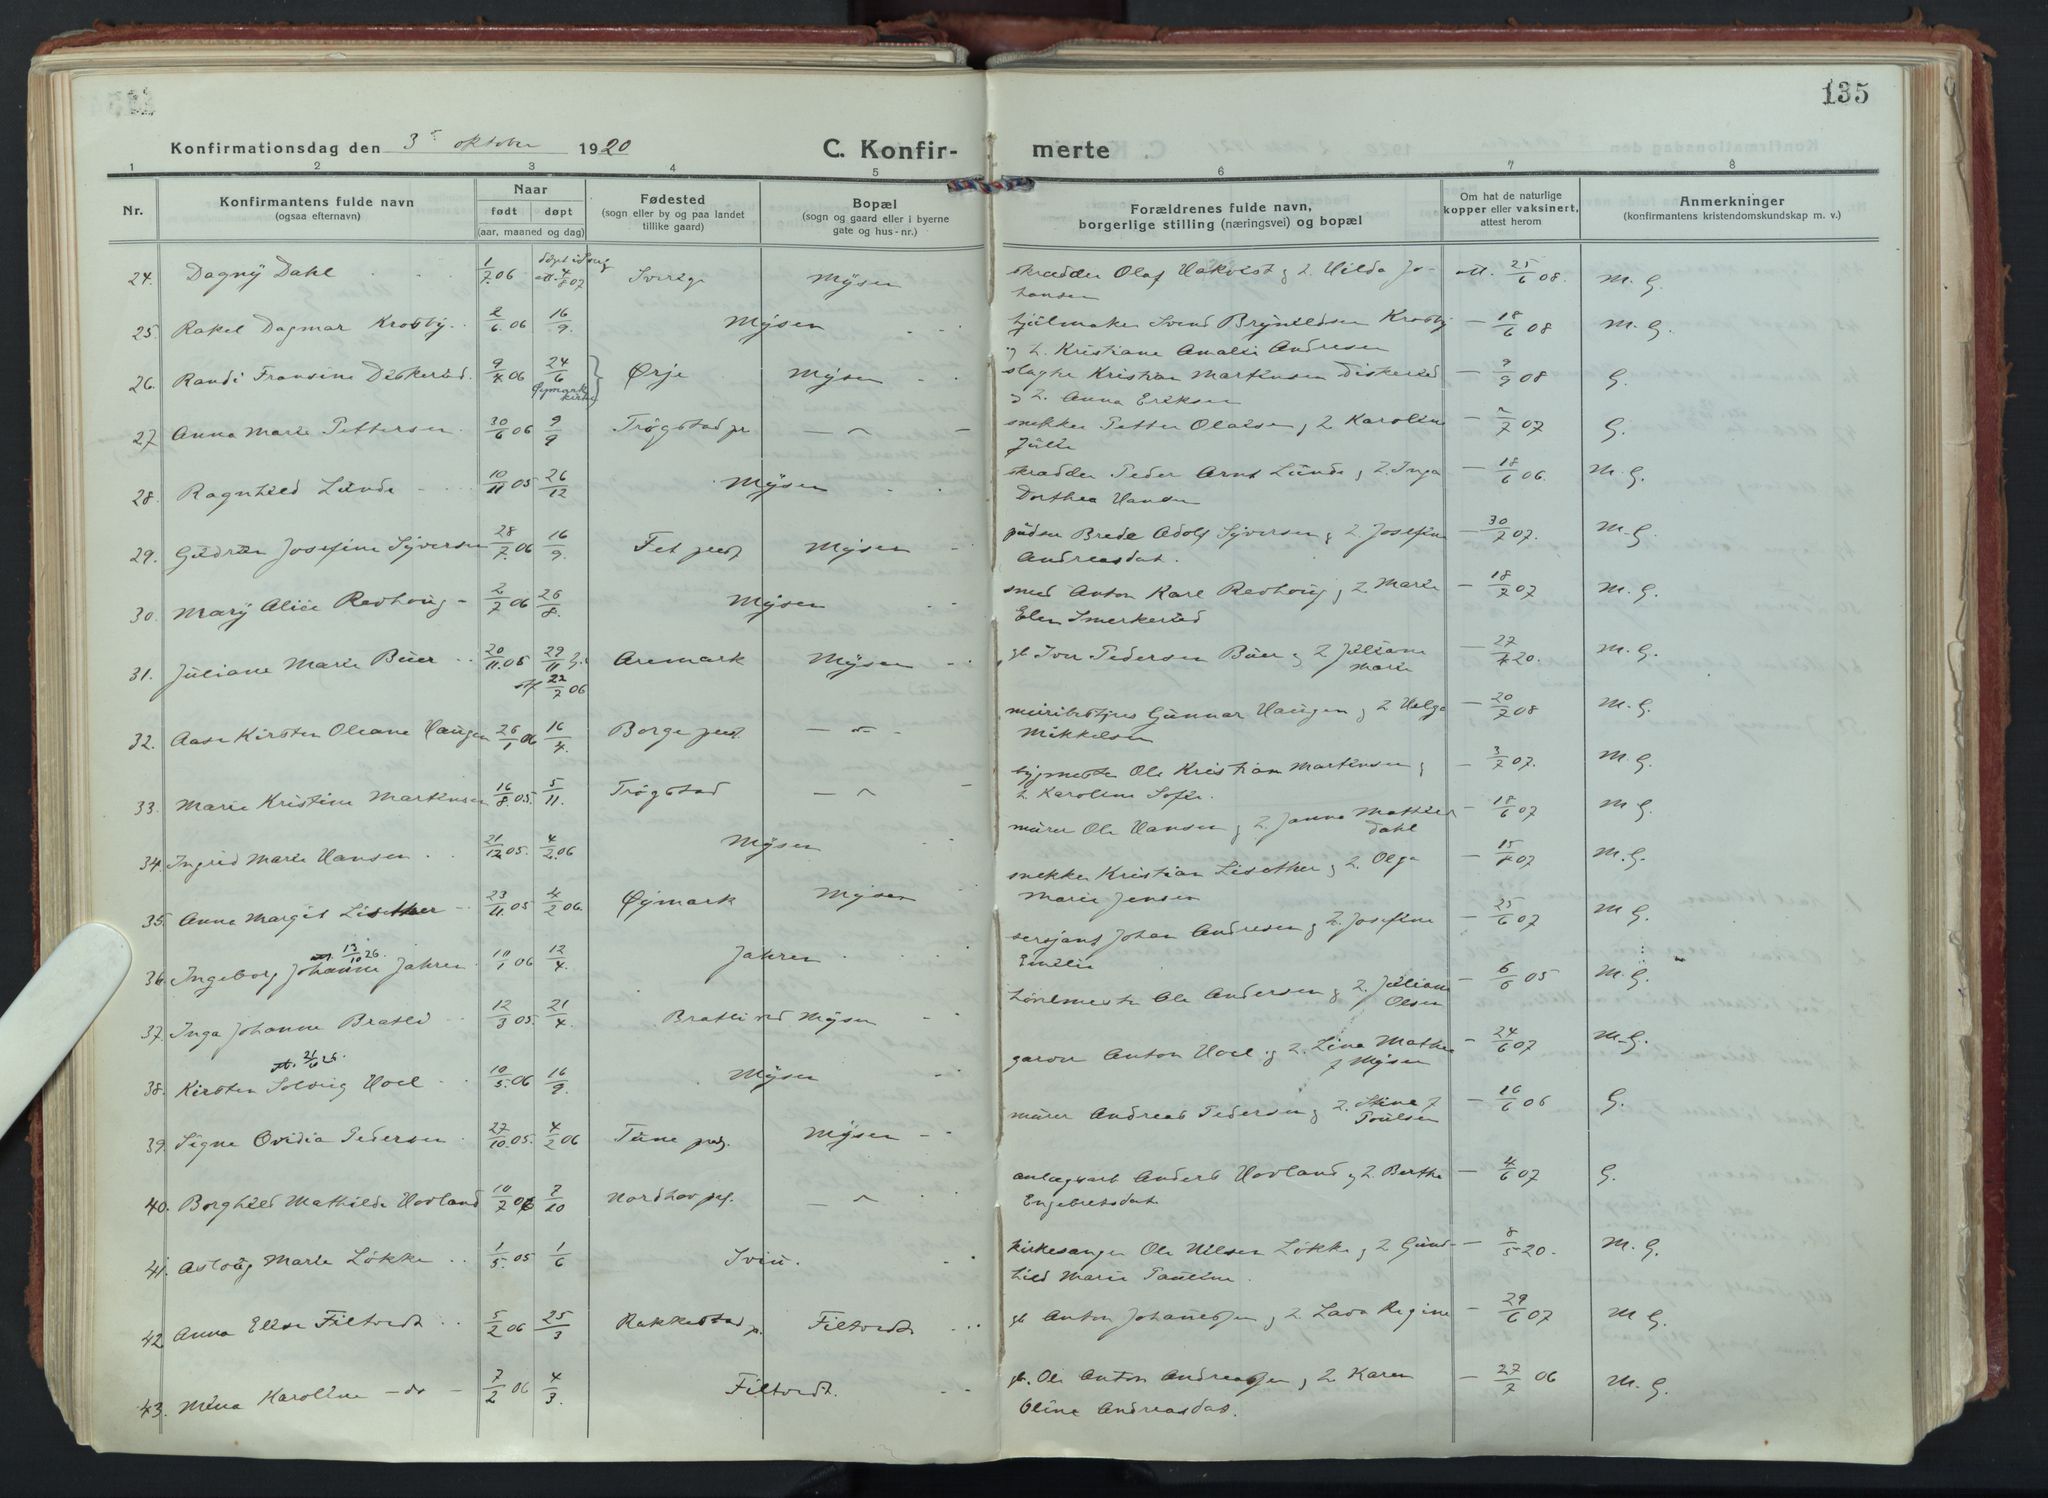 135
Konfirmationsdag den 3 oktober 1920
C. Konfir- merte
1 2 3 4 5 6 7 8
Nr.
Konfirmantens fulde navn
(ogsaa efternavn)
Naar
født døpt
(aar, maaned og dag)
Fødested
(sogn eller by og paa landet
tillike gaard)
Bopæl
(sogn og gaard eller i byerne
gate og hus-nr.)
Forældrenes fulde navn,
borgerlige stilling (næringsvei) og bopæl
Om hat de naturlige
kopper eller vaksinert,
attest herom
Anmerkninger
(konfirmantens kristendomskundskap m. v.)
24. Dagny Dahl 1/7 06 4/8 07 Sverige Mysen skrædder Olaf & Hilda Jo- att. 25/6 08. M. G.
hansen
25. Rakel Dagmar Krosby 2/6 06 16/9 Mysen hjulmaker Svend Brynildsen Krosby — 18/6 08 M. G.
og h. Kristiane Amalie Andresen
26. Randi Fransine Diskerud 9/4 06 24/6 Øymark kirke Ørje Mysen slagter Kristian Martinsen Diskerud — 9/9 08 G.
og h. Anna Eriksen
27 Anna Marie Pettersen 30/6 06 9/9 Trøgstad pr — " — snekker Petter Olaisen og h. Karoline — 2/7 07 G.
Julie
28. Ragnhild Lunde 10/11 05 26/12 Mysen skrædder Peder Arnt Lunde og h. Inga — 18/6 06. M. G.
Dorthea Hansen
29. Gudrun Josefine Syversen 28/7 06 16/9 Fet prest Mysen Brede Adolf Syversen og h. Josefine — 30/7 07. M. G.
Andreasdat.
30. Mary Alice Revhoug 2/7 06 26/8. Mysen smed Anton Karl Revhoug og h. Marie — 18/7 07 M. G.
Elen Smerkerud
31. Juliane Marie Buer 20/11 05 29/11 22/7 06 Aremark Mysen gb. Iver Pedersen Buer og h. Juliane — 27/4 20. M. G.
Marie
32. Aase Kirsten Oleane Haugen 26/1 06 16/4. Borge prest. — " — Gunnar Haugen og h. Helga — 20/7 08 M. G.
Mikkelsen
33. Marie Kristine Martinsen 16/8 05. 5/11. Trøgstad — " — bygmester Ole Kristian Martinsen og — 3/7 07. M. G.
h. Karoline Sofie.
34. Ingrid Marie Hansen 21/12 05. 4/2 06 Mysen murer Ole Hansen og h. Janna Mathea — 18/6 07 M. G.
Dahl
35. Anna Margit Lisether 23/11 05 4/2 06. Øymark Mysen snekker Kristian Lisether og h. Olga — 15/8 07 M. G.
Marie Jensen
13/10 26.
36. Ingeborg Johanne Jahren 10/1 06 12/4. Jahren sersjant Johan Andresen og h. Josefine — 25/6 07 M. G.
Emilie
37. Inga Johanne Bratli 12/3 05. 21/4. Bratli ved Mysen Ole Andersen og h. Juliane — 6/6 05 M. G.
Olsen
att. 21/6 26.
38. Kirsten Solveig Hoel 10/5 06 16/9. Mysen Anton Hoel og h. Lina Mathea — 24/6 07 M. G.
f Mysen
39. Signe Ovidia Pedersen 27/10 05. 4/2 06 Tune prg. Mysen murer Andreas Pedersen og h. Stina f — 16/6 06 G.
Poulsen
40. Borghild Mathilde Hovland 10/7 06 7/10 Nordhov prg. — " — anlægsarb Anders Hovland og h. Berthe — 4/6 07 G.
Engebretsdat
41. Aslaug Marie Løkke 1/5 05 1/6 kirkesanger Ole Nilsen Løkke og h Gund- — 8/5 20. M. G.
hild Marie Pauline.
42 Anna Elise Filtvedt 5/2 06 25/3 Rakkestad p. Filtvedt gb Anton Johannessen og h. Lava Regine — 29/6 07 M G.
43. Mina Karoline — do — 7/2 06 4/3. Filtvedt. gb. Ole Anton Andreassen og h. Karen — 27/7 06 M. G.
Oline Andreasdat.